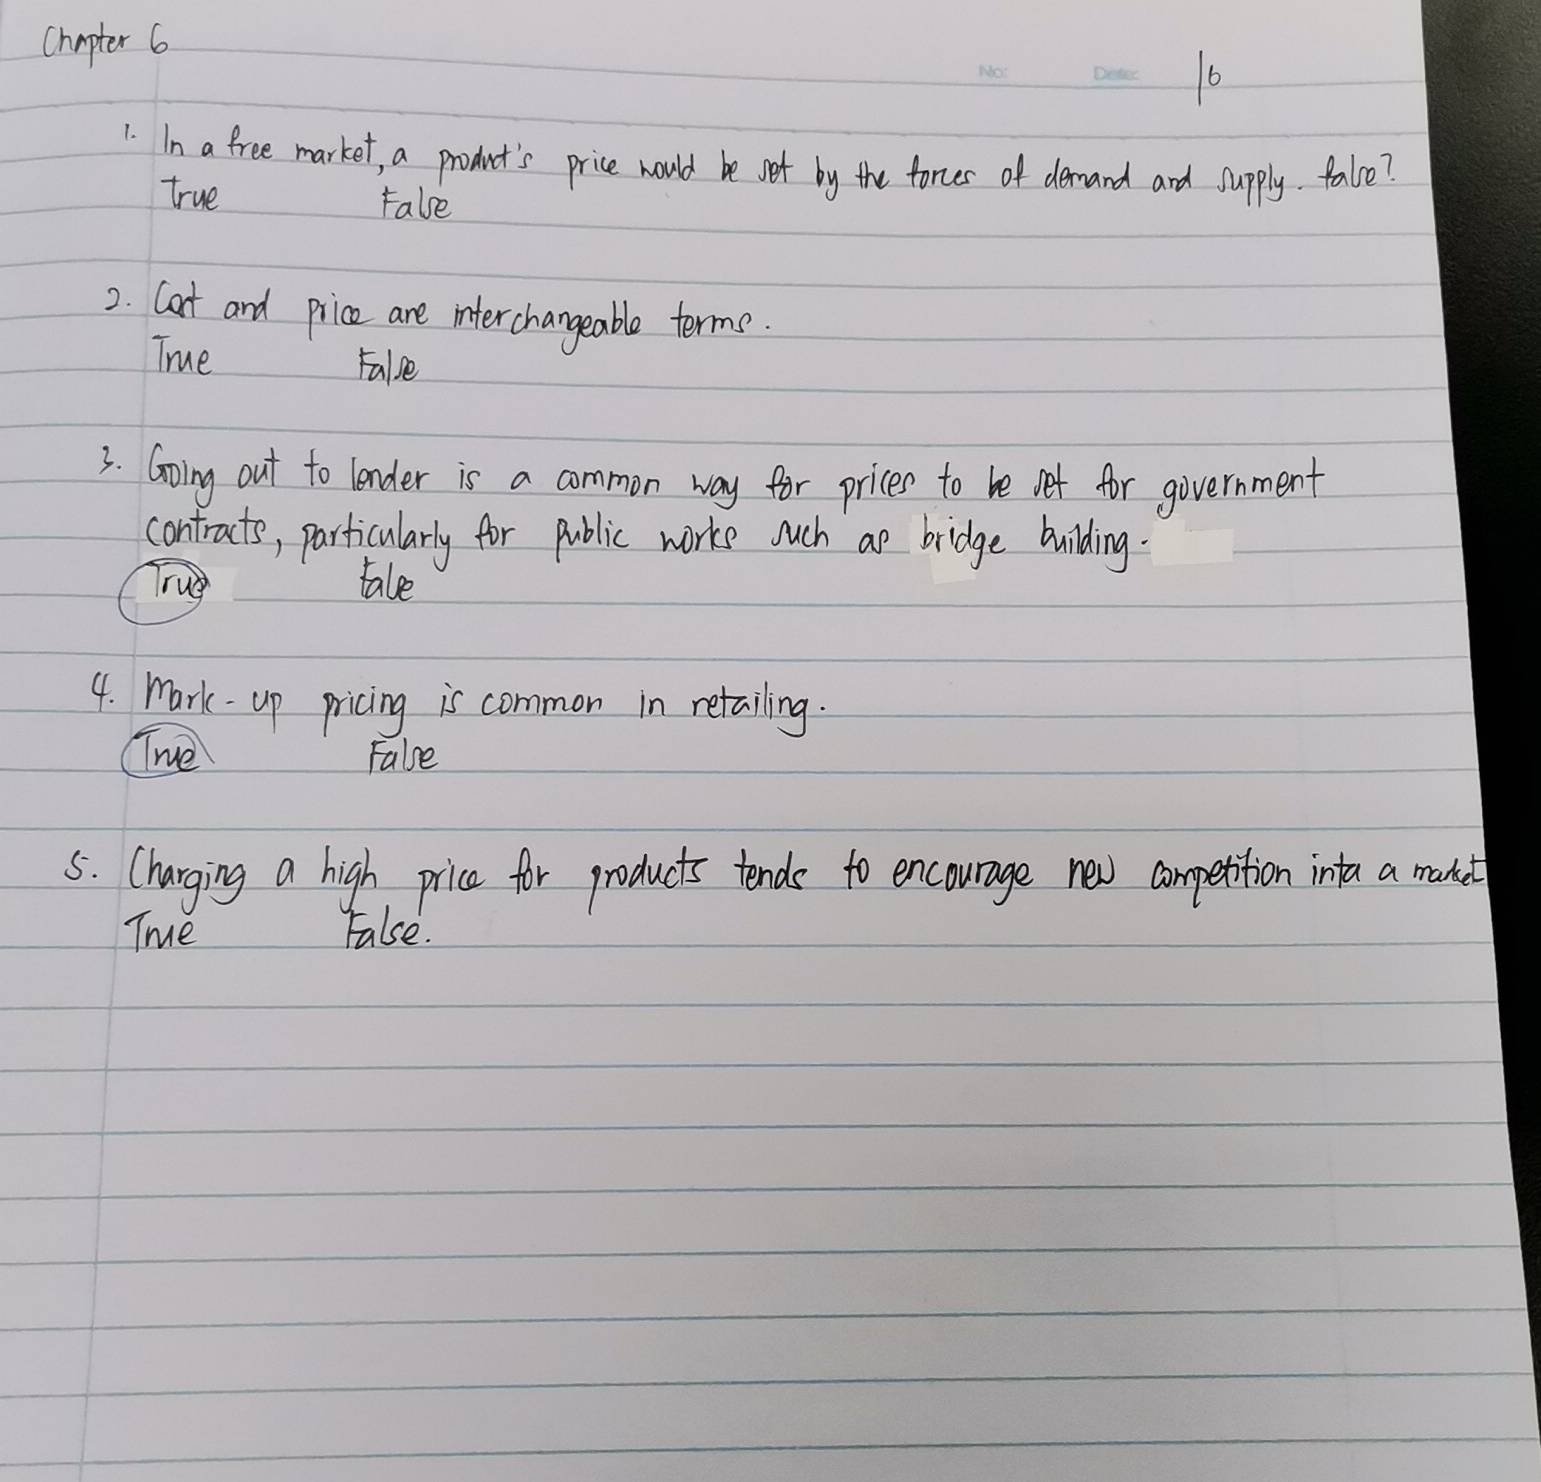 Chapter 6
No: Date: 16
1. In a free market, a product's price would be set by the forces of demand and supply. false?
True False
2. Cost and price are interchangeable terms.
True False
3. Going out to tender is a common way for prices to be set for government
contracts, particularly for public works such as bridge building.
True False
4. Mark-up pricing is common in retailing.
True False
5. Charging a high price for products tends to encourage new competition inta a market
True False.